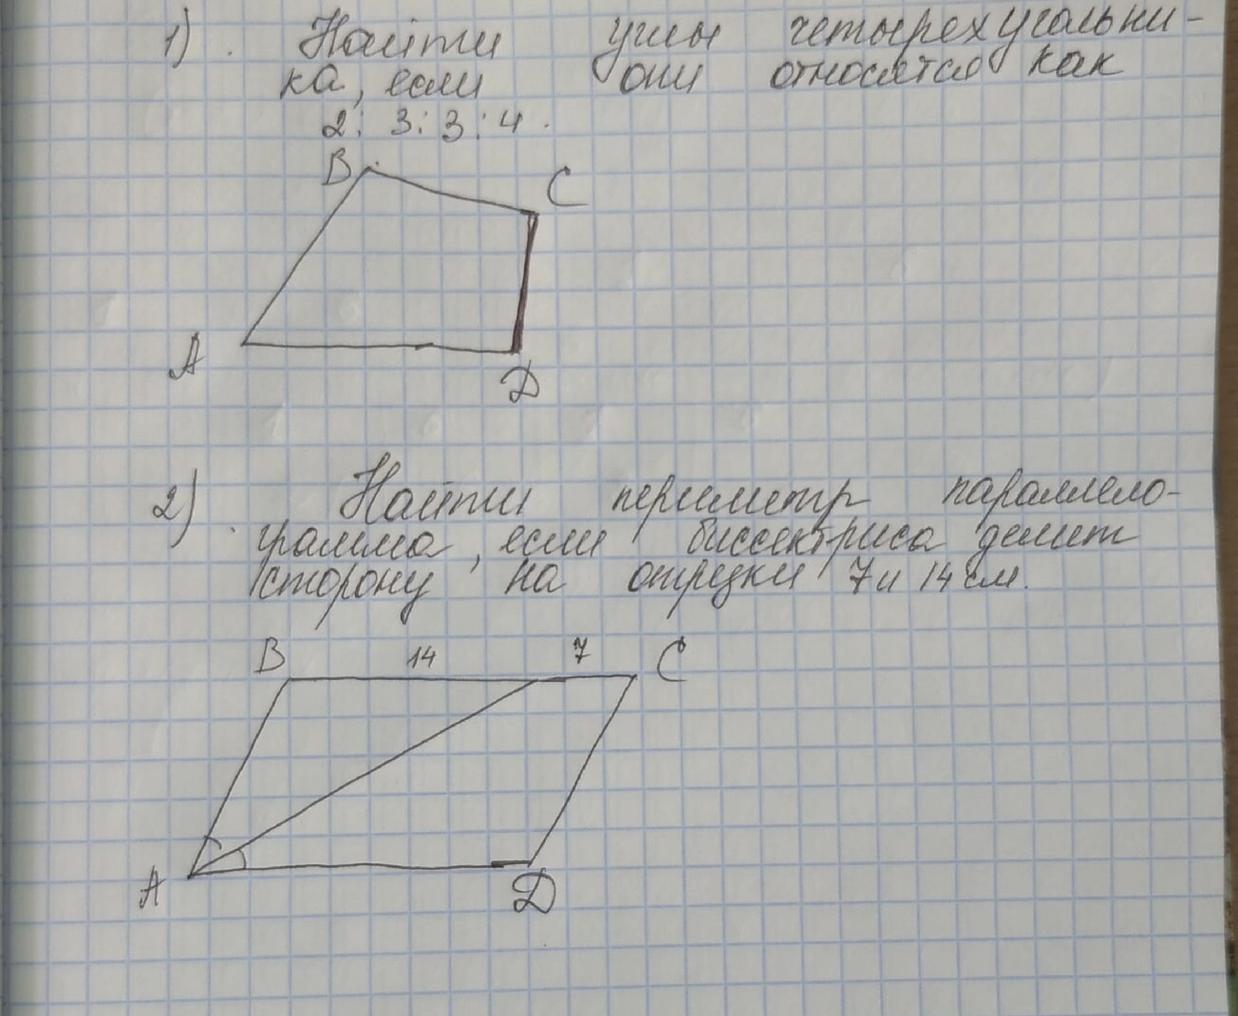 1). Найти углы четырехугольни-
ка, если они относятся как
2: 3: 3: 4.
B
C
A
D
2). Найти периметр параллело-
грамма, если биссектриса делит
сторону на отрезки 7 и 14 см.
B 14 7 C
A D